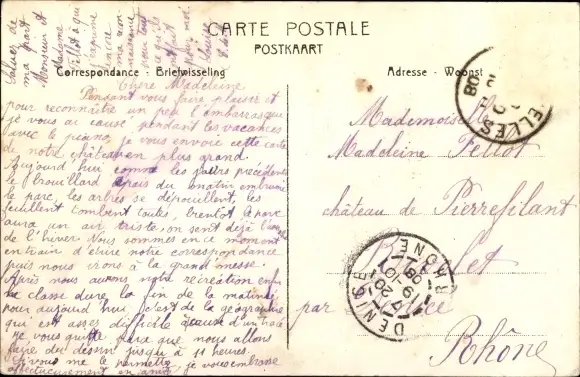 CARTE POSTALE
POSTKAART
Correspondance - Briefwisseling
Adresse - Woonst
Saluez de
ma part
Monsieur et
Madame
Fellot à qui
j'exprime
ma
pour tout
ce qu'ils
ont fait
pour moi.
Chère Madeleine
Pensant vous faire plaisir et
pour reconnaître un peu l'embarras que
je vous ai causé, pendant les vacances
avec le piano, je vous envoie cette carte
de notre château en plus grand.
Aujourd'hui comme les jours précédents
le brouillard épais du matin embrume
le parc, les arbres se dépouillent, les
feuillent tombent toutes, bientôt le parc
aura un air triste, on sent déjà l'arrivée
de l'hiver. Nous sommes en ce moment
en train d'écrire notre correspondance
puis nous irons à la grand'messe.
Après nous aurons notre récréation enfin
la classe dure la fin de la matinée
pour aujourd'hui, c'est de la géographie
qui est assez difficile à cause d'un tracé
Je vous quitte parce que nous allons
faire du dessin jusqu'à 11 heures.
Si vous me le permettez, je vous embrasse
affectueusement en amie
Mademoiselle
Madeleine Fellot
château de Pierrefilant
par
Rhône
ELLES
08
DENICE
RHONE
20-10
08